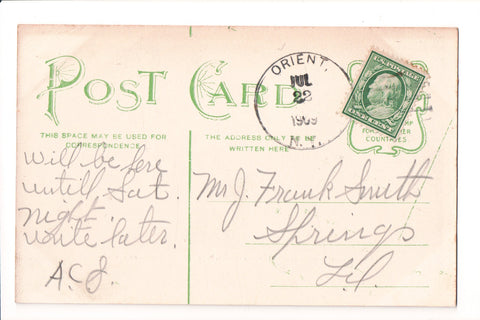 POST CARD
THIS SPACE MAY BE USED FOR
CORRESPONDENCE
THE ADDRESS ONLY TO BE
WRITTEN HERE
FOR
COUNTRIES.
ORIENT,
JUL
1909
N.Y.
U.S. POSTAGE
ONE CENT
will be here
untill Sat.
night.
write later.
Mr J. Frank Smith
Springs